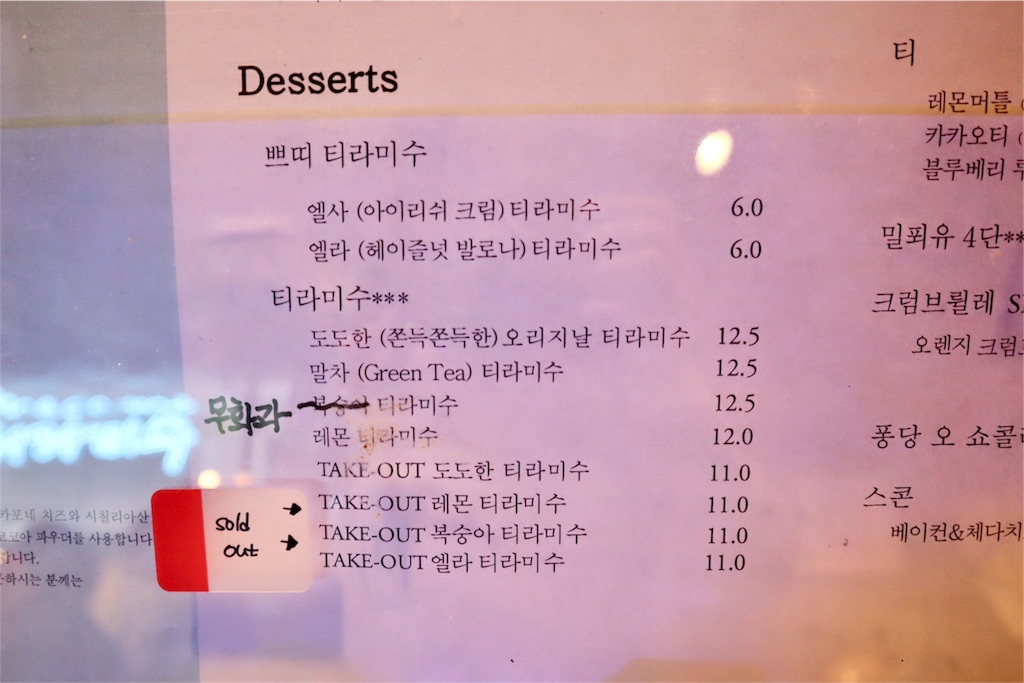 Desserts
쁘띠 티라미수
엘사 (아이리쉬 크림)티라미수 6.0
엘라 (헤이즐넛 발로나)티라미수 6.0
티라미수***
도도한 (쫀득쫀득한)오리지날 티라미수 12.5
말차 (Green Tea) 티라미수 12.5
무화과 복숭아 티라미수 12.5
레몬 티라미수 12.0
TAKE-OUT 도도한 티라미수 11.0
TAKE-OUT 레몬 티라미수 11.0
TAKE-OUT 복숭아 티라미수 11.0
TAKE-OUT 엘라 티라미수 11.0
sold →
out →
카포네 치즈와 시칠리아산
코코아 파우더를 사용합니다
합니다.
하시는 분께는
티
레몬머틀
카카오티
블루베리
밀푀유 4단**
크럼브륄레
오렌지 크럼
퐁당 오 쇼콜
스콘
베이컨&체다치